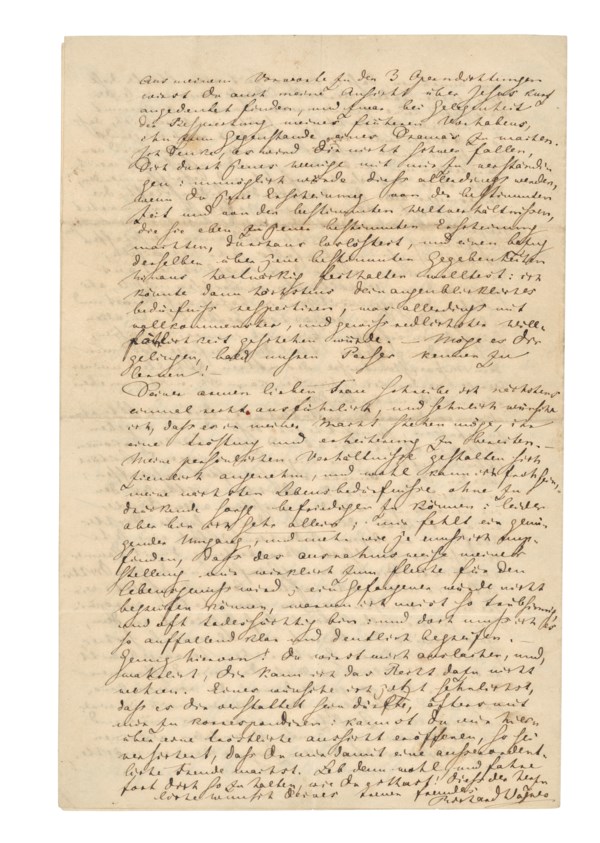 Aus meinem Vorworte zu den 3 Operndichtungen
wirst Du auch meine Ansicht über Jesus kurz
angedeutet finden, und zwar bei Gelegenheit
der Besprechung meines früheren Vorhabens,
ihn zum Gegenstande eines Dramas zu machen.
Ich denke, es wird Dir nicht schwer fallen,
Dich durch jenes Wenige mit mir zu verständi-
gen: unmöglich würde dies allerdings werden,
wenn Du jene Erscheinung von der bestimmten
Zeit und von den bestimmten Weltverhältnissen,
die sie eben zu jener bestimmten Erscheinung
machten, durchaus loslöstest, und einen Bezug
derselben über jene bestimmten Gegebenheiten
hinaus hartnäckig festhalten wolltest: ich
könnte dann höchstens Dein augenblickliches
Bedürfniss respectiren, was allerdings mit
vollkommenster, und gewiss redlichster Will-
fährigkeit geschehen würde. — Möge es Dir
gelingen, bald unsren zu
lernen!
Deiner armen lieben Frau schreibe ich nächstens
einmal recht ausführlich, und sehnlich wünsche
ich, dass es in meiner Macht stehen möge, ihr
eine Tröstung und Erheiterung zu bereiten. —
Meine persönlichen Verhältnisse gestalten sich
ziemlich angenehm, und wohl kann ich froh sein,
meine nächsten Lebensbedürfnisse ohne zu
drückende Sorge befriedigen zu können: leider
aber bin ich sehr allein; mir fehlt ein genü-
gender Umgang, und mehr wie je muss ich emp-
finden, dass das ausnahmsweise meiner
Stellung mir wirklich zum Fluche für den
Lebensgenuss wird; ein Gefangener würde nicht
begreifen können, warum ich meist so trübsinnig
und oft todessüchtig bin: und doch muss ich es
so auffallend klar und deutlich begreifen. —
Genug hiervon! Du wirst mich auslachen, und,
wahrlich, Dir kann ich das Recht dazu nicht
nehmen. Eines wünsche ich jetzt sehnlichst,
dass es Dir verstattet sein dürfte, öfters mit
mir zu korrespondiren: kannst Du mir hier-
über eine tröstliche Aussicht eröffnen, so sei
versichert, dass Du mir damit eine ausserordent-
liche Freude machst. Leb denn wohl und fahre
fort Dich so zu halten, wie Du gethan! Dies der herz-
liche Wunsch Deines treuen Freundes
Richard Wagner